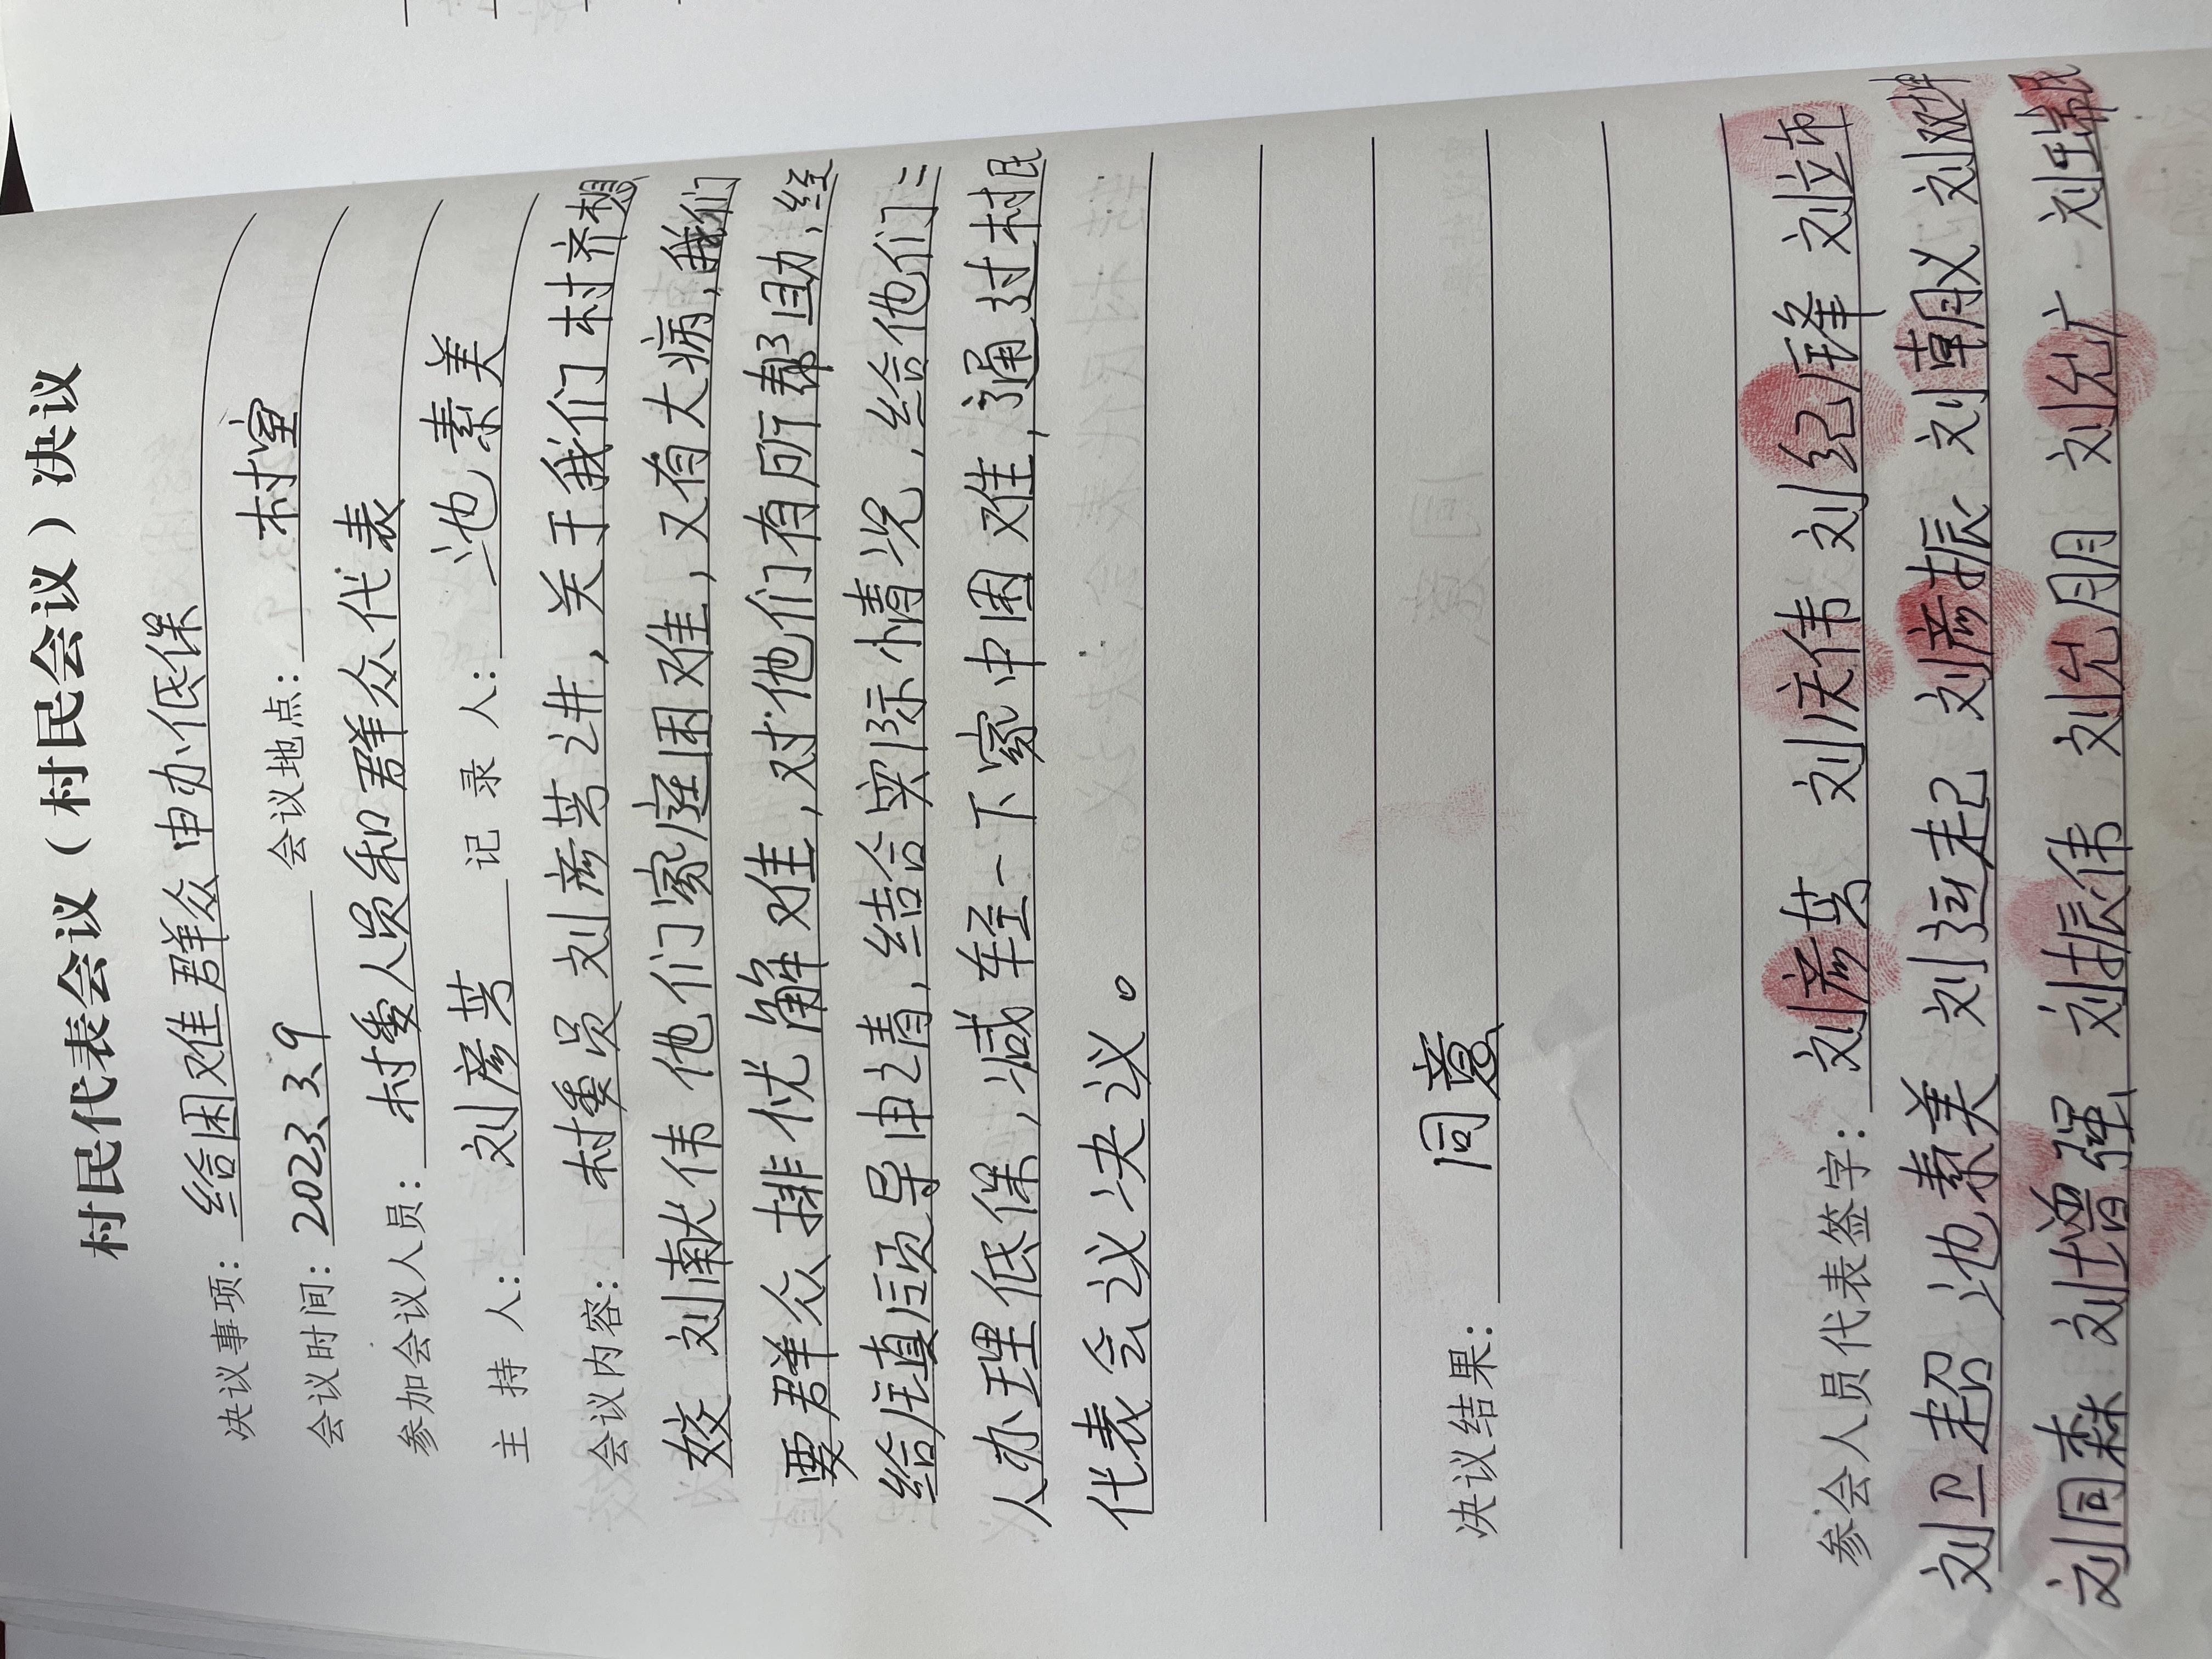 村民代表会议（村民会议）决议
决议事项：给困难群众申办低保
会议时间：2023、3、9 会议地点：村室
参加会议人员：村委人员和群众代表
主持人：刘彦芳 记录人：池素美
会议内容：村委员刘彦芳讲，关于我们村齐想
姣 刘献伟他们家庭困难，又有大病，我们
要群众排忧解难，对他们有所帮助，经
给镇领导申请，结合实际情况，给他们二
人办理低保，减轻一下家中困难，通过村民
代表会议决议。
决议结果：同意
参会人员代表签字：刘彦芳 刘庆伟 刘纪锋 刘立市
刘卫超 池素美 刘运起 刘彦振 刘朝义 刘双坤
刘同森 刘增强 刘振伟 刘允朋 刘允广 刘瑞民